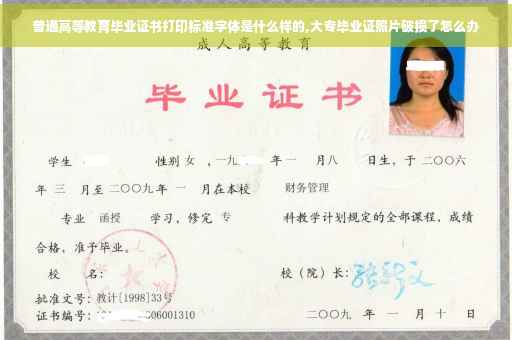 普通高等教育毕业证书打印标准字体是什么样的,大专毕业证照片破损了怎么办
成人高等教育
毕业证书
学生 性别 女 ,一九 年一 月八 日生,于二〇〇六
年 三 月至二〇〇九年 一 月在本校 财务管理
专业 函授 学习,修完 专 科教学计划规定的全部课程,成绩
合格,准予毕业。
校 名: 校(院)长:
批准文号:教计[1998]33号
证书编号: 06001310 二〇〇九 年 一 月 十 日